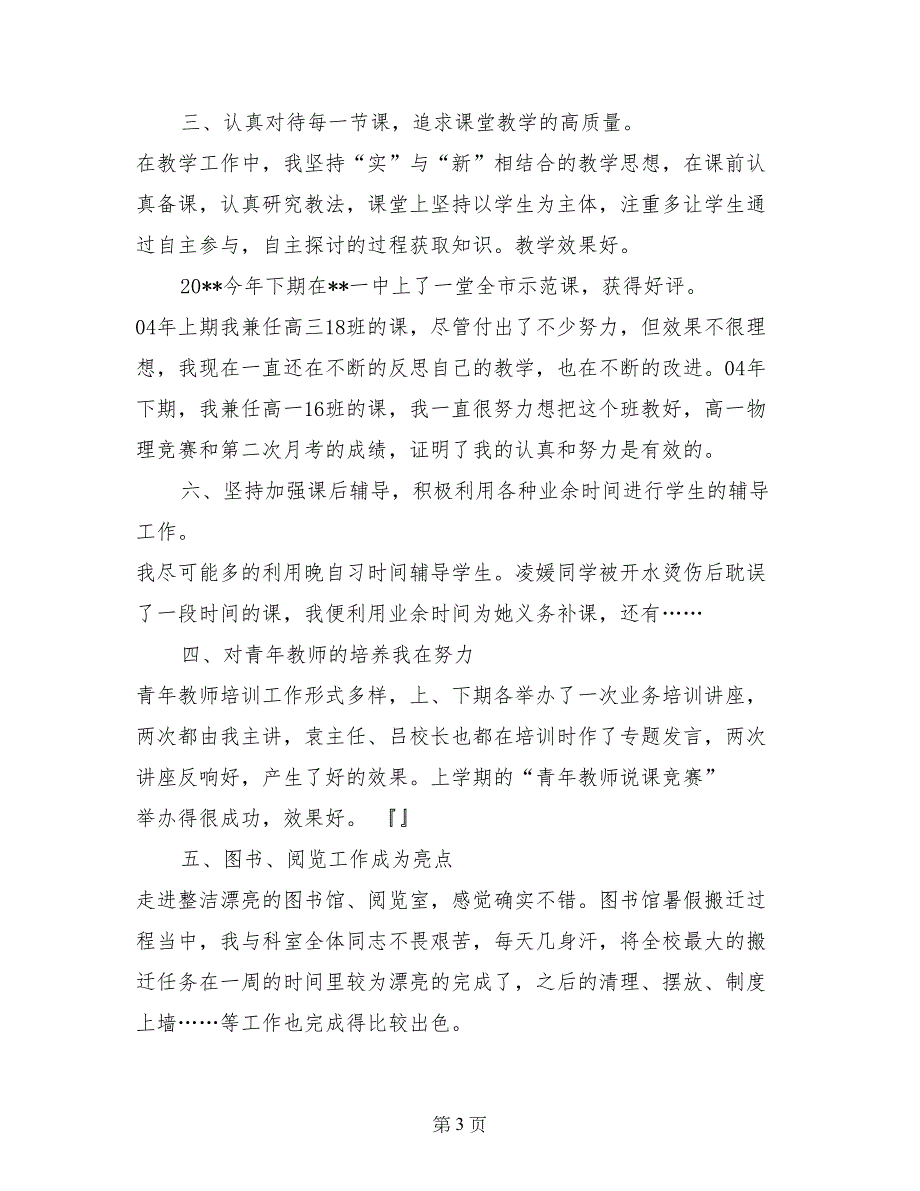 三、认真对待每一节课，追求课堂教学的高质量。
在教学工作中，我坚持“实”与“新”相结合的教学思想，在课前认
真备课，认真研究教法，课堂上坚持以学生为主体，注重多让学生通
过自主参与，自主探讨的过程获取知识。教学效果好。
20**今年下期在**一中上了一堂全市示范课，获得好评。
04年上期我兼任高三18班的课，尽管付出了不少努力，但效果不很理
想，我现在一直还在不断的反思自己的教学，也在不断的改进。04年
下期，我兼任高一16班的课，我一直很努力想把这个班教好，高一物
理竞赛和第二次月考的成绩，证明了我的认真和努力是有效的。
六、坚持加强课后辅导，积极利用各种业余时间进行学生的辅导
工作。
我尽可能多的利用晚自习时间辅导学生。凌媛同学被开水烫伤后耽误
了一段时间的课，我便利用业余时间为她义务补课，还有……
四、对青年教师的培养我在努力
青年教师培训工作形式多样，上、下期各举办了一次业务培训讲座，
两次都由我主讲，袁主任、吕校长也都在培训时作了专题发言，两次
讲座反响好，产生了好的效果。上学期的“青年教师说课竞赛”
举办得很成功，效果好。 『』
五、图书、阅览工作成为亮点
走进整洁漂亮的图书馆、阅览室，感觉确实不错。图书馆暑假搬迁过
程当中，我与科室全体同志不畏艰苦，每天几身汗，将全校最大的搬
迁任务在一周的时间里较为漂亮的完成了，之后的清理、摆放、制度
上墙……等工作也完成得比较出色。
第 3 页